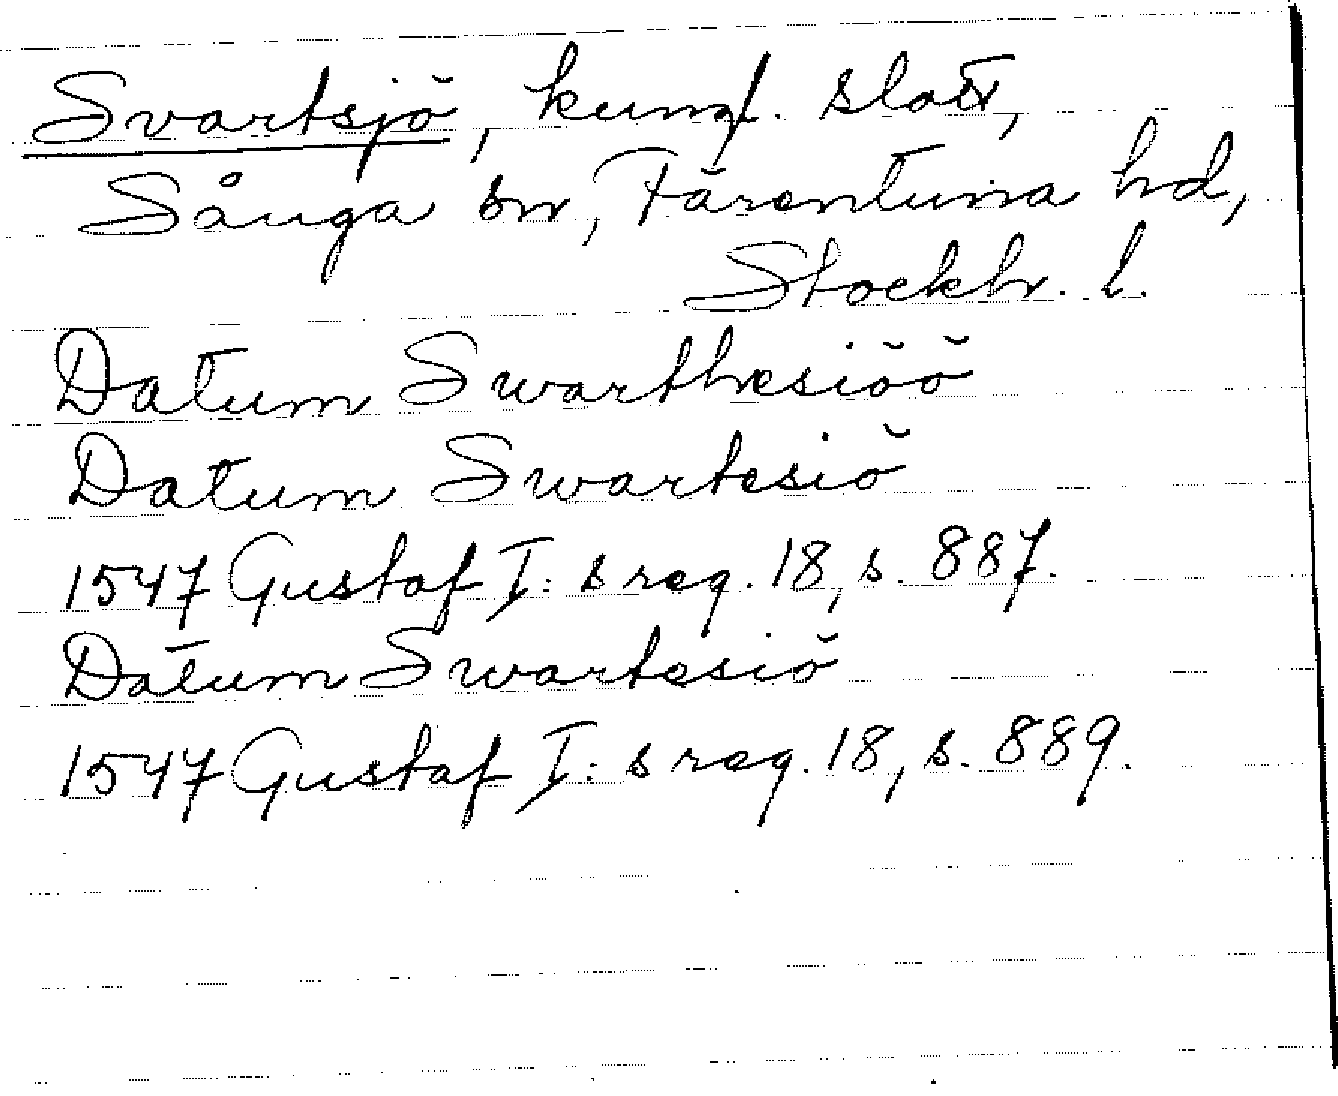 Svartsjö, kungl. slott,
Sånga sn, Färentuna hd,
Stockh. l.
Datum Swarthesiöö
Datum Swartesiö
1547 Gustaf I:s reg. 18, s. 887.
Datum Swartesiö
1547 Gustaf I:s reg. 18, s. 889.